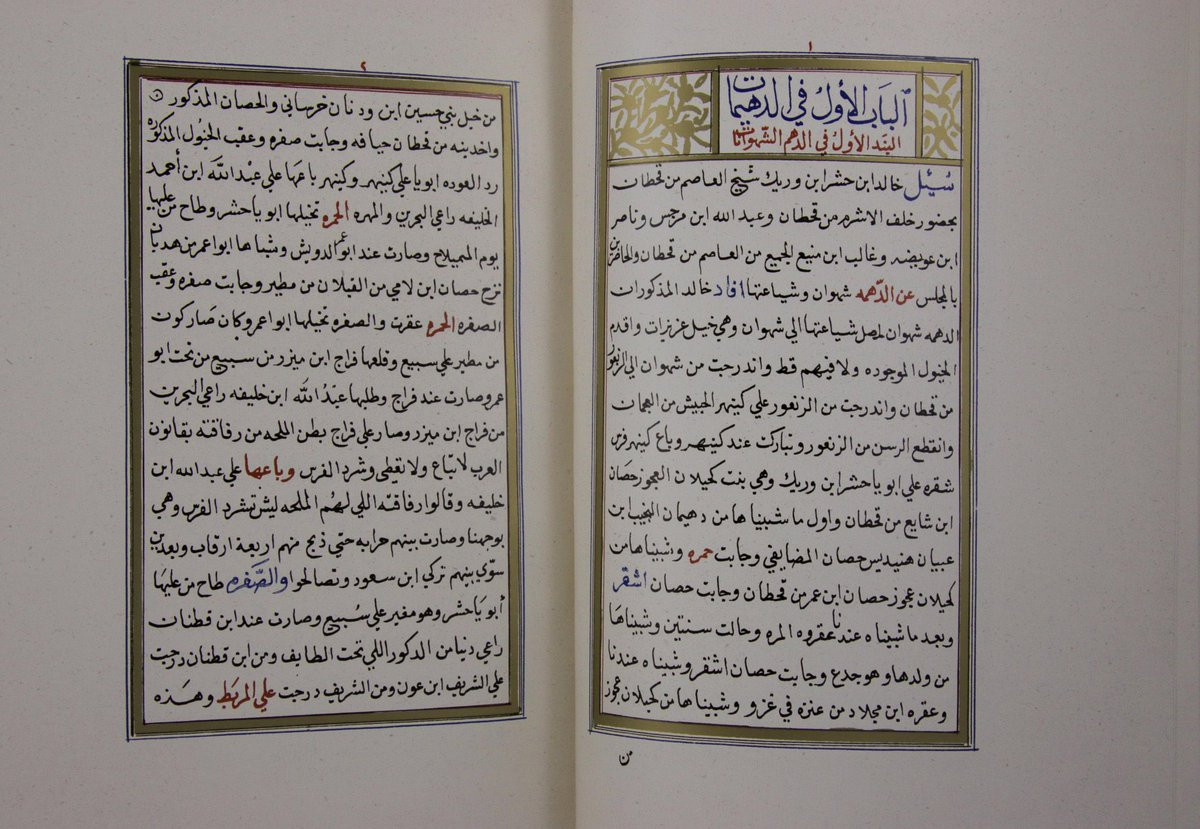 ١
الباب الأول في الدهيمات
البند الأول في الدهم الشهوانيات
سُئِل خالد ابن حشر ابن وريك شيخ العاصم من قحطان
بحضور خلف الاشرم من قحطان وعبد الله ابن مرجس وناصر
ابن عويضه وغالب ابن منيع الجميع من العاصم من قحطان والحاضرين
بالمجلس عن الدّهمه شهوان وشياعتها افاد خالد المذكوران
الدهمه شهوان اصل شياعتها الي شهوان وهي خيل عزيزات واقدم
الخيول الموجوده ولا فيهم قط واندرجت من شهوان الي الزنعور
من قحطان واندرجت من الزنعور علي كنيهر الحبيش من العجمان
وانقطع الرسن من الزنعور وتباركت عند كنيهر وباع كنيهر فرس
شقره علي ابو يا حشر ابن وريك وهي بنت كحيلان العجوز حصان
ابن شايع من قحطان واول ما شبيناها من دهيمان النجيب ابن
عبيان هنيديس حصان المضايفي وجابت حمره وشبيناها من
كحيلان عجوز حصان ابن عمر من قحطان وجابت حصان اشقر
وبعد ما شبيناه عندنا عقروه المره وحالت سنتين وشبيناها
من ولدها وهو جدع وجابت حصان اشقر وشبيناه عندنا
وعقره ابن مجلاد من عنزه في غزو وشبيناها من كحيلان عجوز
من
٢
من خيل بني حسين ابن ودنان خرساني والحصان المذكور
واخدينه من قحطان حيافه وجابت صفره وعقب الخيول المذكوره
رد العوده ابويا علي كنيهر وكنيهر باعها علي عبد الله ابن أحمد
الخليفه راعي البحرين والمهره الحمره تخيلها ابو يا حشر وطاح من عليها
يوم المسيلاح وصارت عند ابو عمر الدويش وشباها ابو اعمر من هدبان
نزح حصان ابن لامي من القبلان من مطير وجابت صفره وعقب
الصفره الحمره عقرت والصفره تخيلها ابو اعمر وكان صار كون
من مطير علي سبيع وقلعها فراج ابن ميزر من سبيع من تحت ابو
عمر وصارت عند فراج وطلبها عبدُ الله ابن خليفه راعي البحرين
من فراج ابن ميزر وصار علي فراج بطن اللحه من رفاقته بقانون
العرب لا تباع ولا تقطى وشرد الفرس وباعها علي عبد الله ابن
خليفه وقالوا رفاقته اللي لهم الملحه ليش تشرد الفرس وهي
بوجهنا وصارت بينهم حرابه حتي ذبح منهم اربعة ارقاب وبعدين
سوّى بينهم تركي ابن سعود وتصالحوا والصّفره طاح من عليها
أبو يا حشر وهو مغير علي سُبيع وصارت عند ابن قطنان
راعي دنيا من الدكور اللي تحت الطايف ومن ابن قطنان درجت
علي الشريف ابن عون ومن الشريف درجت علي المربَط وهذه